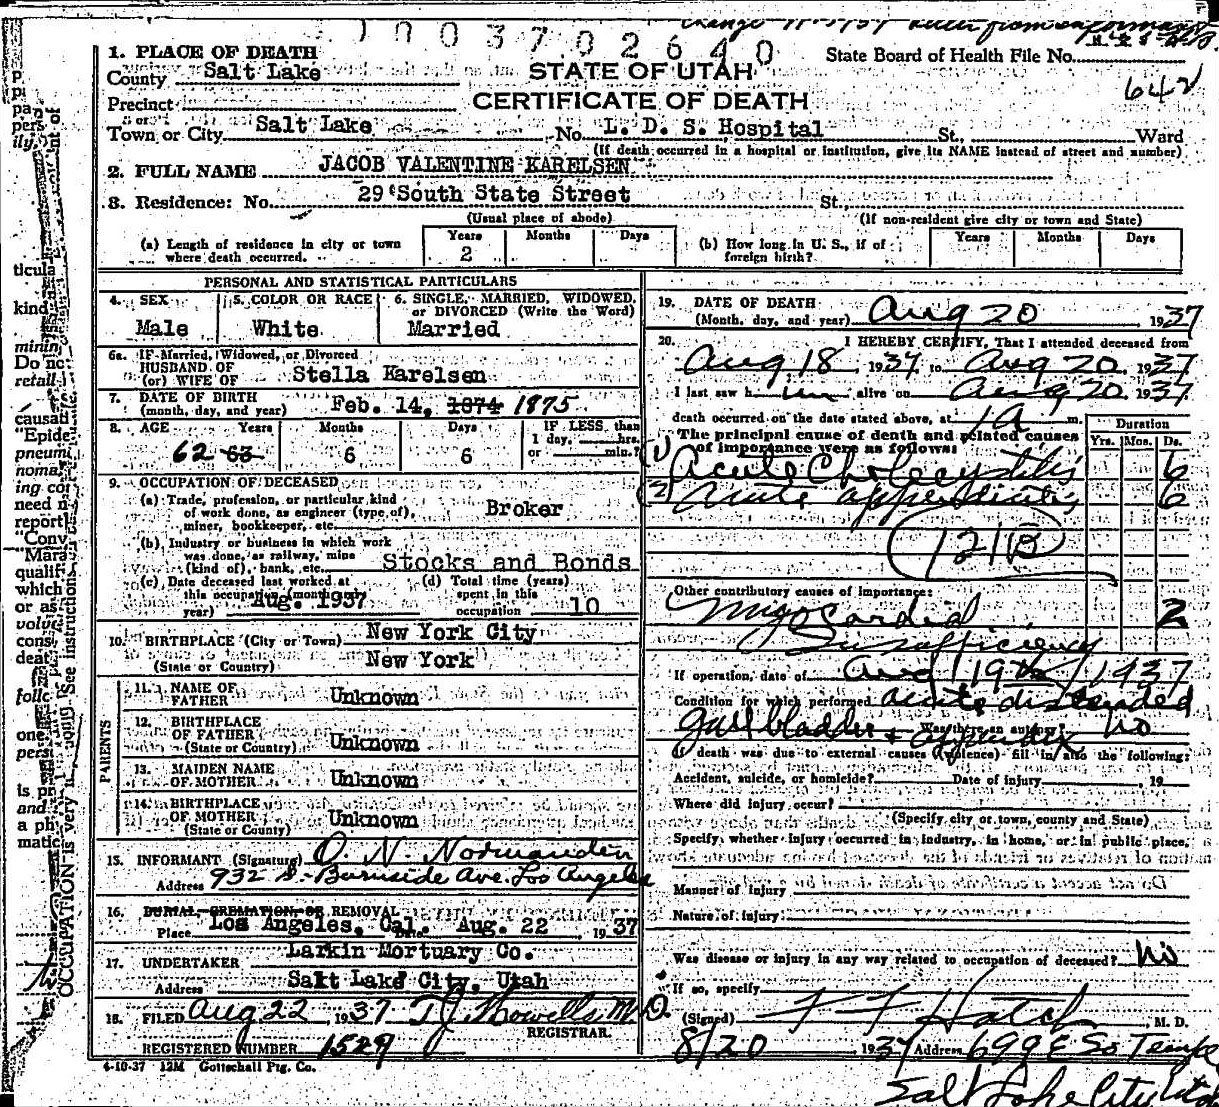 1003702640
change 11-3/37 letter from informant
1. PLACE OF DEATH
State Board of Health File No.
County Salt Lake
STATE OF UTAH
642
Precinct
CERTIFICATE OF DEATH
or
Town or City Salt Lake No. L. D. S. Hospital St., Ward
(If death occurred in a hospital or institution, give its NAME instead of street and number)
2. FULL NAME JACOB VALENTINE KARELSEN
3. Residence: No. 29 South State Street St.,
(Usual place of abode) (If non-resident give city or town and State)
(a) Length of residence in city or town where death occurred. Years 2 Months Days
(b) How long in U. S., if of foreign birth? Years Months Days
PERSONAL AND STATISTICAL PARTICULARS
4. SEX Male
5. COLOR OR RACE White
6. SINGLE, MARRIED, WIDOWED, or DIVORCED (Write the Word) Married
6a. IF Married, Widowed, or Divorced
HUSBAND OF
(or) WIFE OF Stella Karelsen
7. DATE OF BIRTH
(month, day, and year) Feb. 14, 1874 1875
8. AGE Years 62 63 Months 6 Days 6 IF LESS than 1 day, hrs. or min.?
9. OCCUPATION OF DECEASED
(a) Trade, profession, or particular kind
of work done, as engineer (type of),
miner, bookkeeper, etc. Broker
(b) Industry or business in which work
was done, as railway, mine
(kind of), bank, etc. Stocks and Bonds
(c) Date deceased last worked at
this occupation (month and
year) Aug. 1937
(d) Total time (years)
spent in this
occupation 10
10. BIRTHPLACE (City or Town) New York City
(State or Country) New York
PARENTS
11. NAME OF
FATHER Unknown
12. BIRTHPLACE
OF FATHER
(State or Country) Unknown
13. MAIDEN NAME
OF MOTHER Unknown
14. BIRTHPLACE
OF MOTHER
(State or Country) Unknown
15. INFORMANT (Signature) O. N. Normanden
Address 932 S. Burnside Ave. Los Angeles
16. BURIAL, CREMATION, OR REMOVAL
Place Los Angeles, Cal. Date Aug. 22, 1937
17. UNDERTAKER Larkin Mortuary Co.
Address Salt Lake City, Utah
18. FILED Aug 22, 1937 T J Howells M.D.
REGISTRAR.
REGISTERED NUMBER 1529
4-10-37 12M Gottschall Ptg. Co.
19. DATE OF DEATH
(Month, day, and year) Aug 20, 1937
20. I HEREBY CERTIFY, That I attended deceased from
Aug 18, 1937 to Aug 20, 1937
I last saw him alive on Aug 20, 1937
death occurred on the date stated above, at 1 A m.
The principal cause of death and related causes
of importance were as follows:
Duration
Yrs. Mos. Ds.
(1) Acute Cholecystitis 6
(2) Acute appendicitis 6
121B
Other contributory causes of importance:
Myocardial 2
Insufficiency
If operation, date of Aug 19th 1937
Condition for which performed acute distended
gall bladder & appendix Was there an autopsy? No
If death was due to external causes (violence) fill in also the following:
Accident, suicide, or homicide? Date of injury , 19
Where did injury occur?
(Specify city or town, county and State)
Specify whether injury occurred in industry, in home, or in public place.
Manner of injury
Nature of injury
Was disease or injury in any way related to occupation of deceased? No
If so, specify
(Signed) F F Hatch, M. D.
8/20 1937 Address 699 E So Temple
Salt Lake City Utah
OCCUPATION is very
See instructions